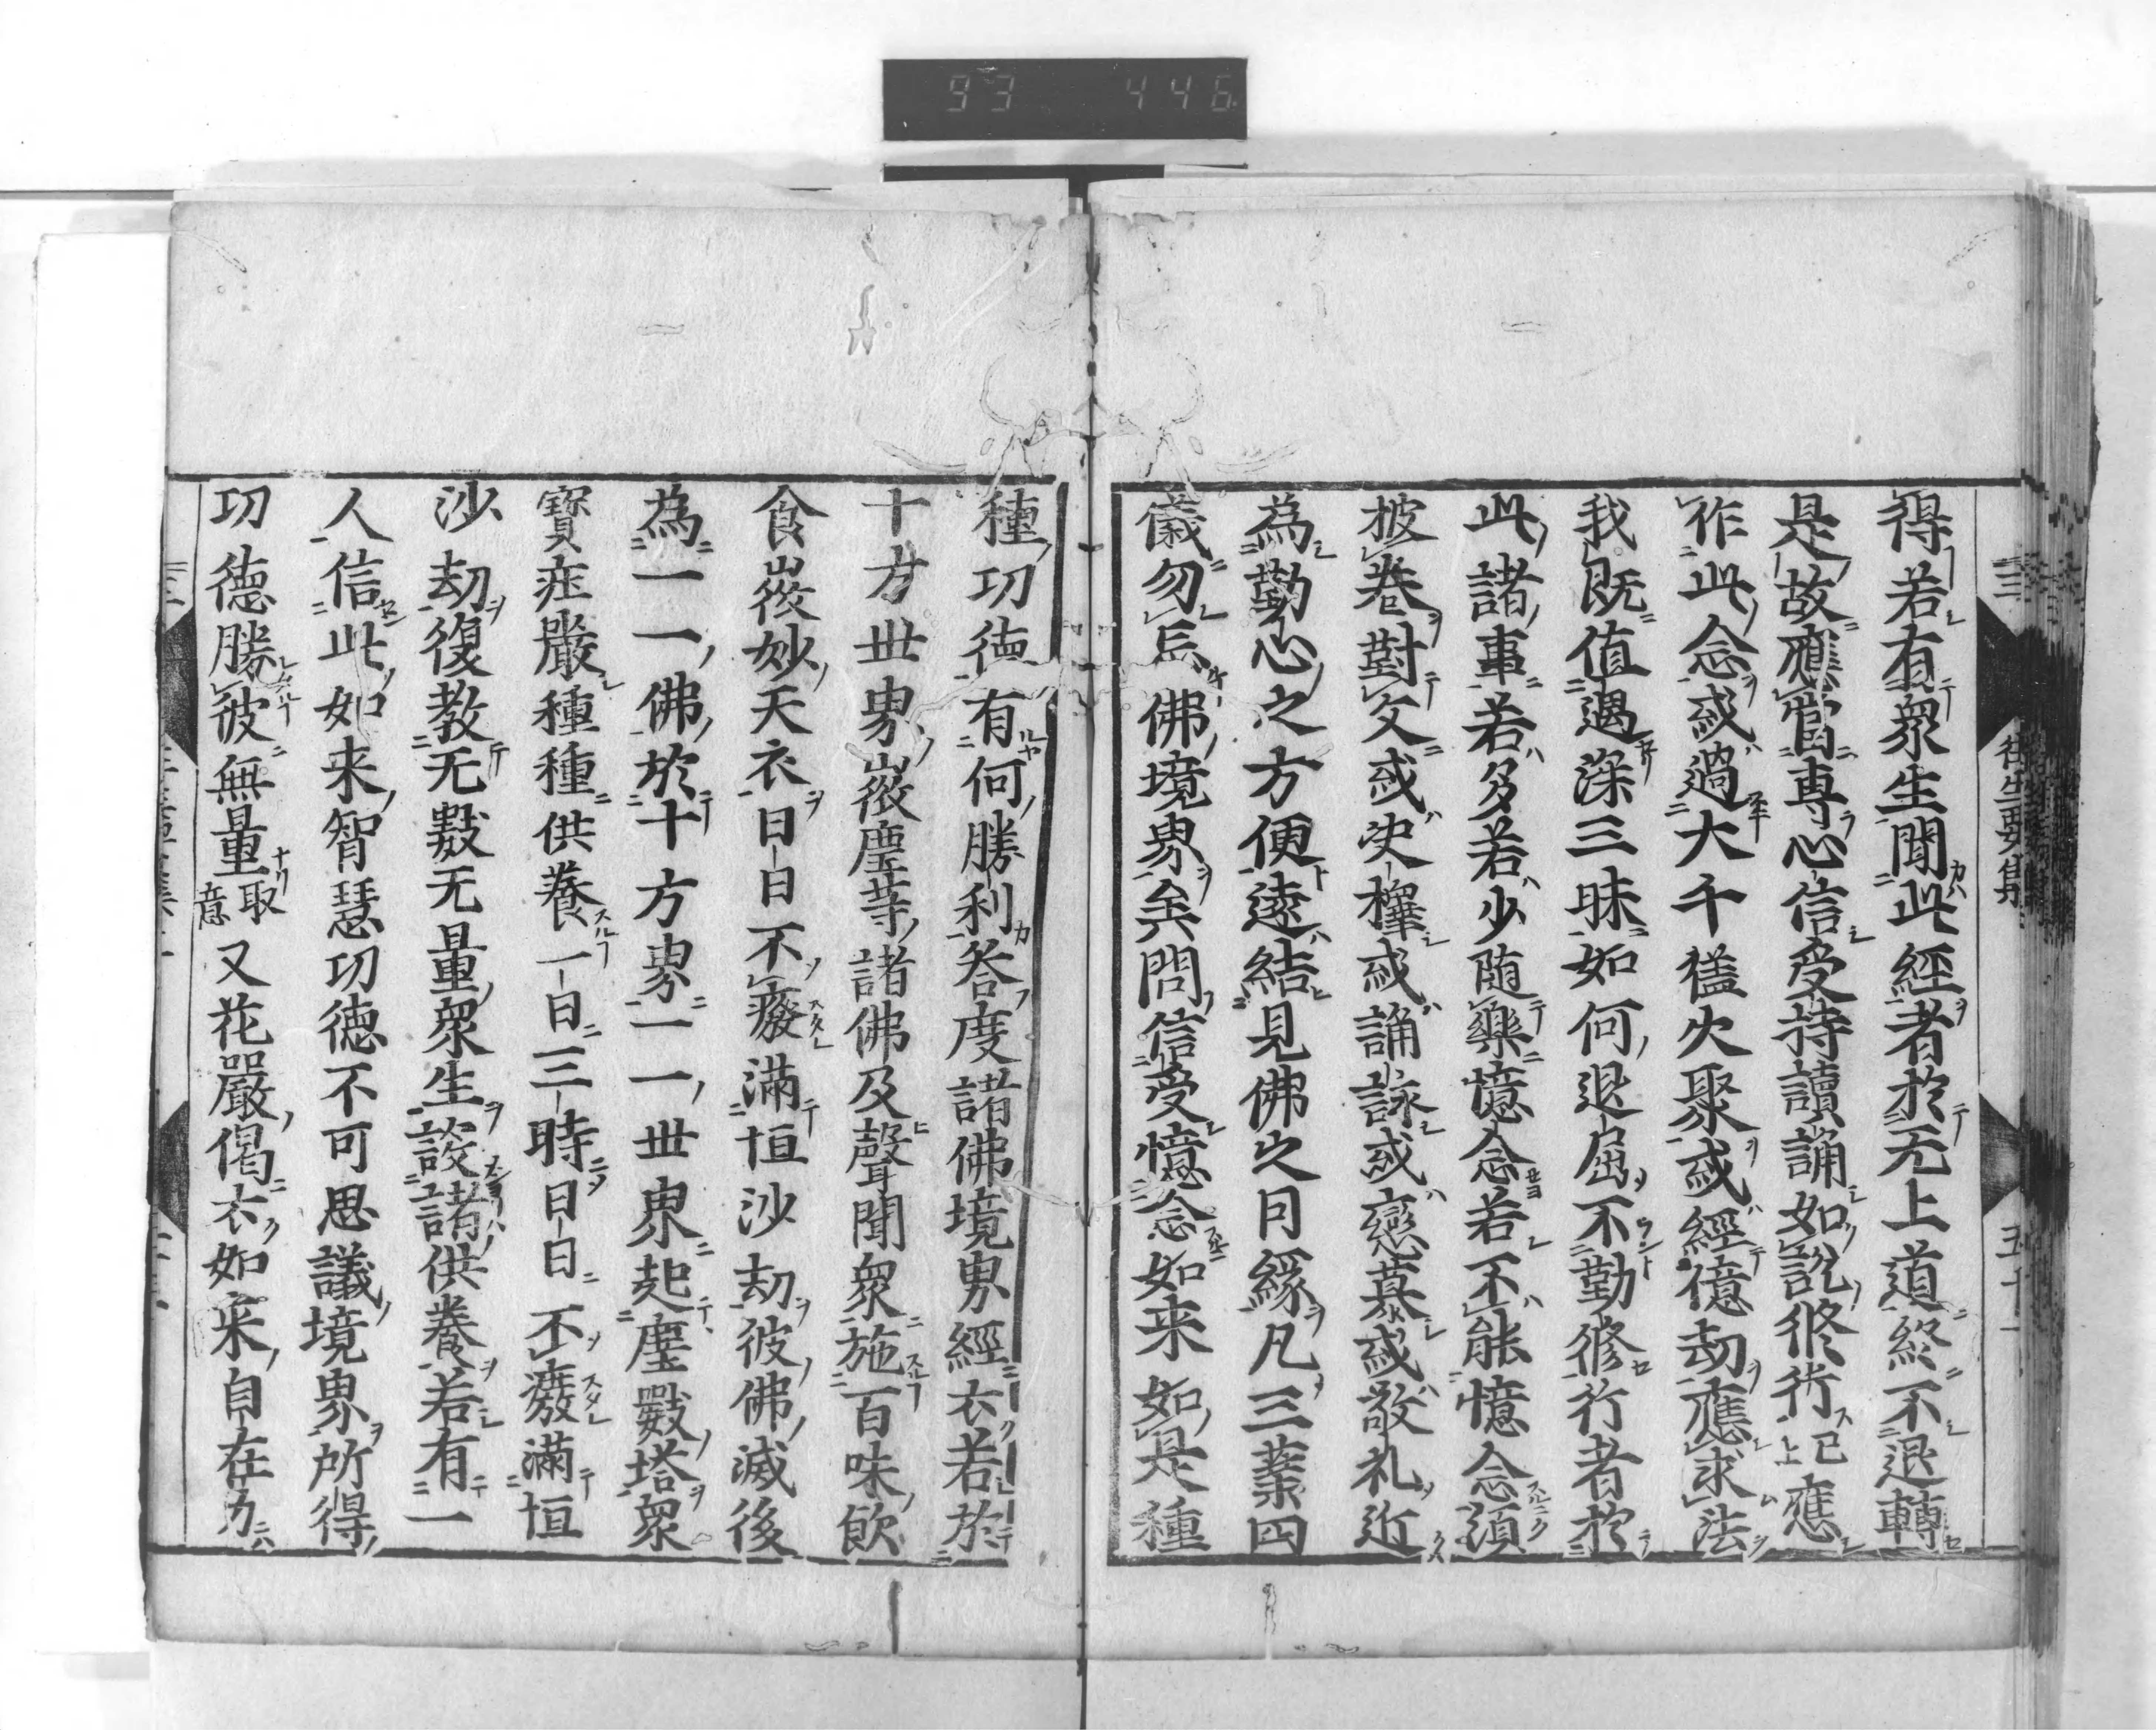 93 446
往生要集
得若有衆生聞此經者於无上道終不退轉
是故應當專心信受持讀誦如說修行已上應
作此念或過大千猛火聚或經億劫應求法
我既值遇深三昧如何退屈不勤修行者於
此諸事若多若少随樂憶念若不能憶念須
披卷對文或決擇或誦詠或戀慕或敬礼近
為勤心之方便遠結見佛之因緣凡三業四
儀勿忘佛境界矣問信受憶念如来如是種
種功徳有何勝利答度諸佛境界經云若於
十方世界微塵等諸佛及聲聞衆施百味飲
食微妙天衣日日不癈滿恒沙劫彼佛滅後
為一一佛於十方界一一世界起塵數塔衆
寶庄嚴種種供養一日三時日日不癈滿恒
沙劫復教无數无量衆生設諸供養若有一
人信此如来智慧功德不可思議境界所得
功德勝彼無量取意又花嚴偈云如来自在力